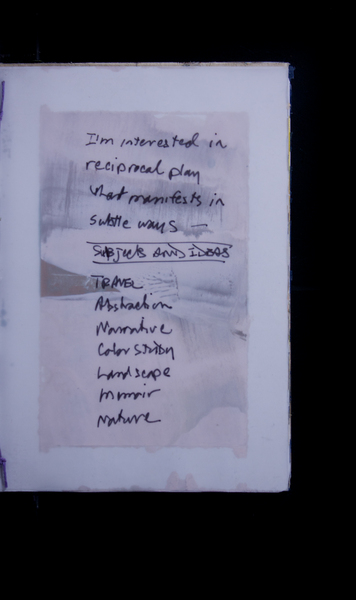 I'm interested in
reciprocal play
that manifests in
subtle ways —
SUBJECTS AND IDEAS
TRAVEL
Abstraction
Narrative
Color Study
Landscape
Memoir
Nature